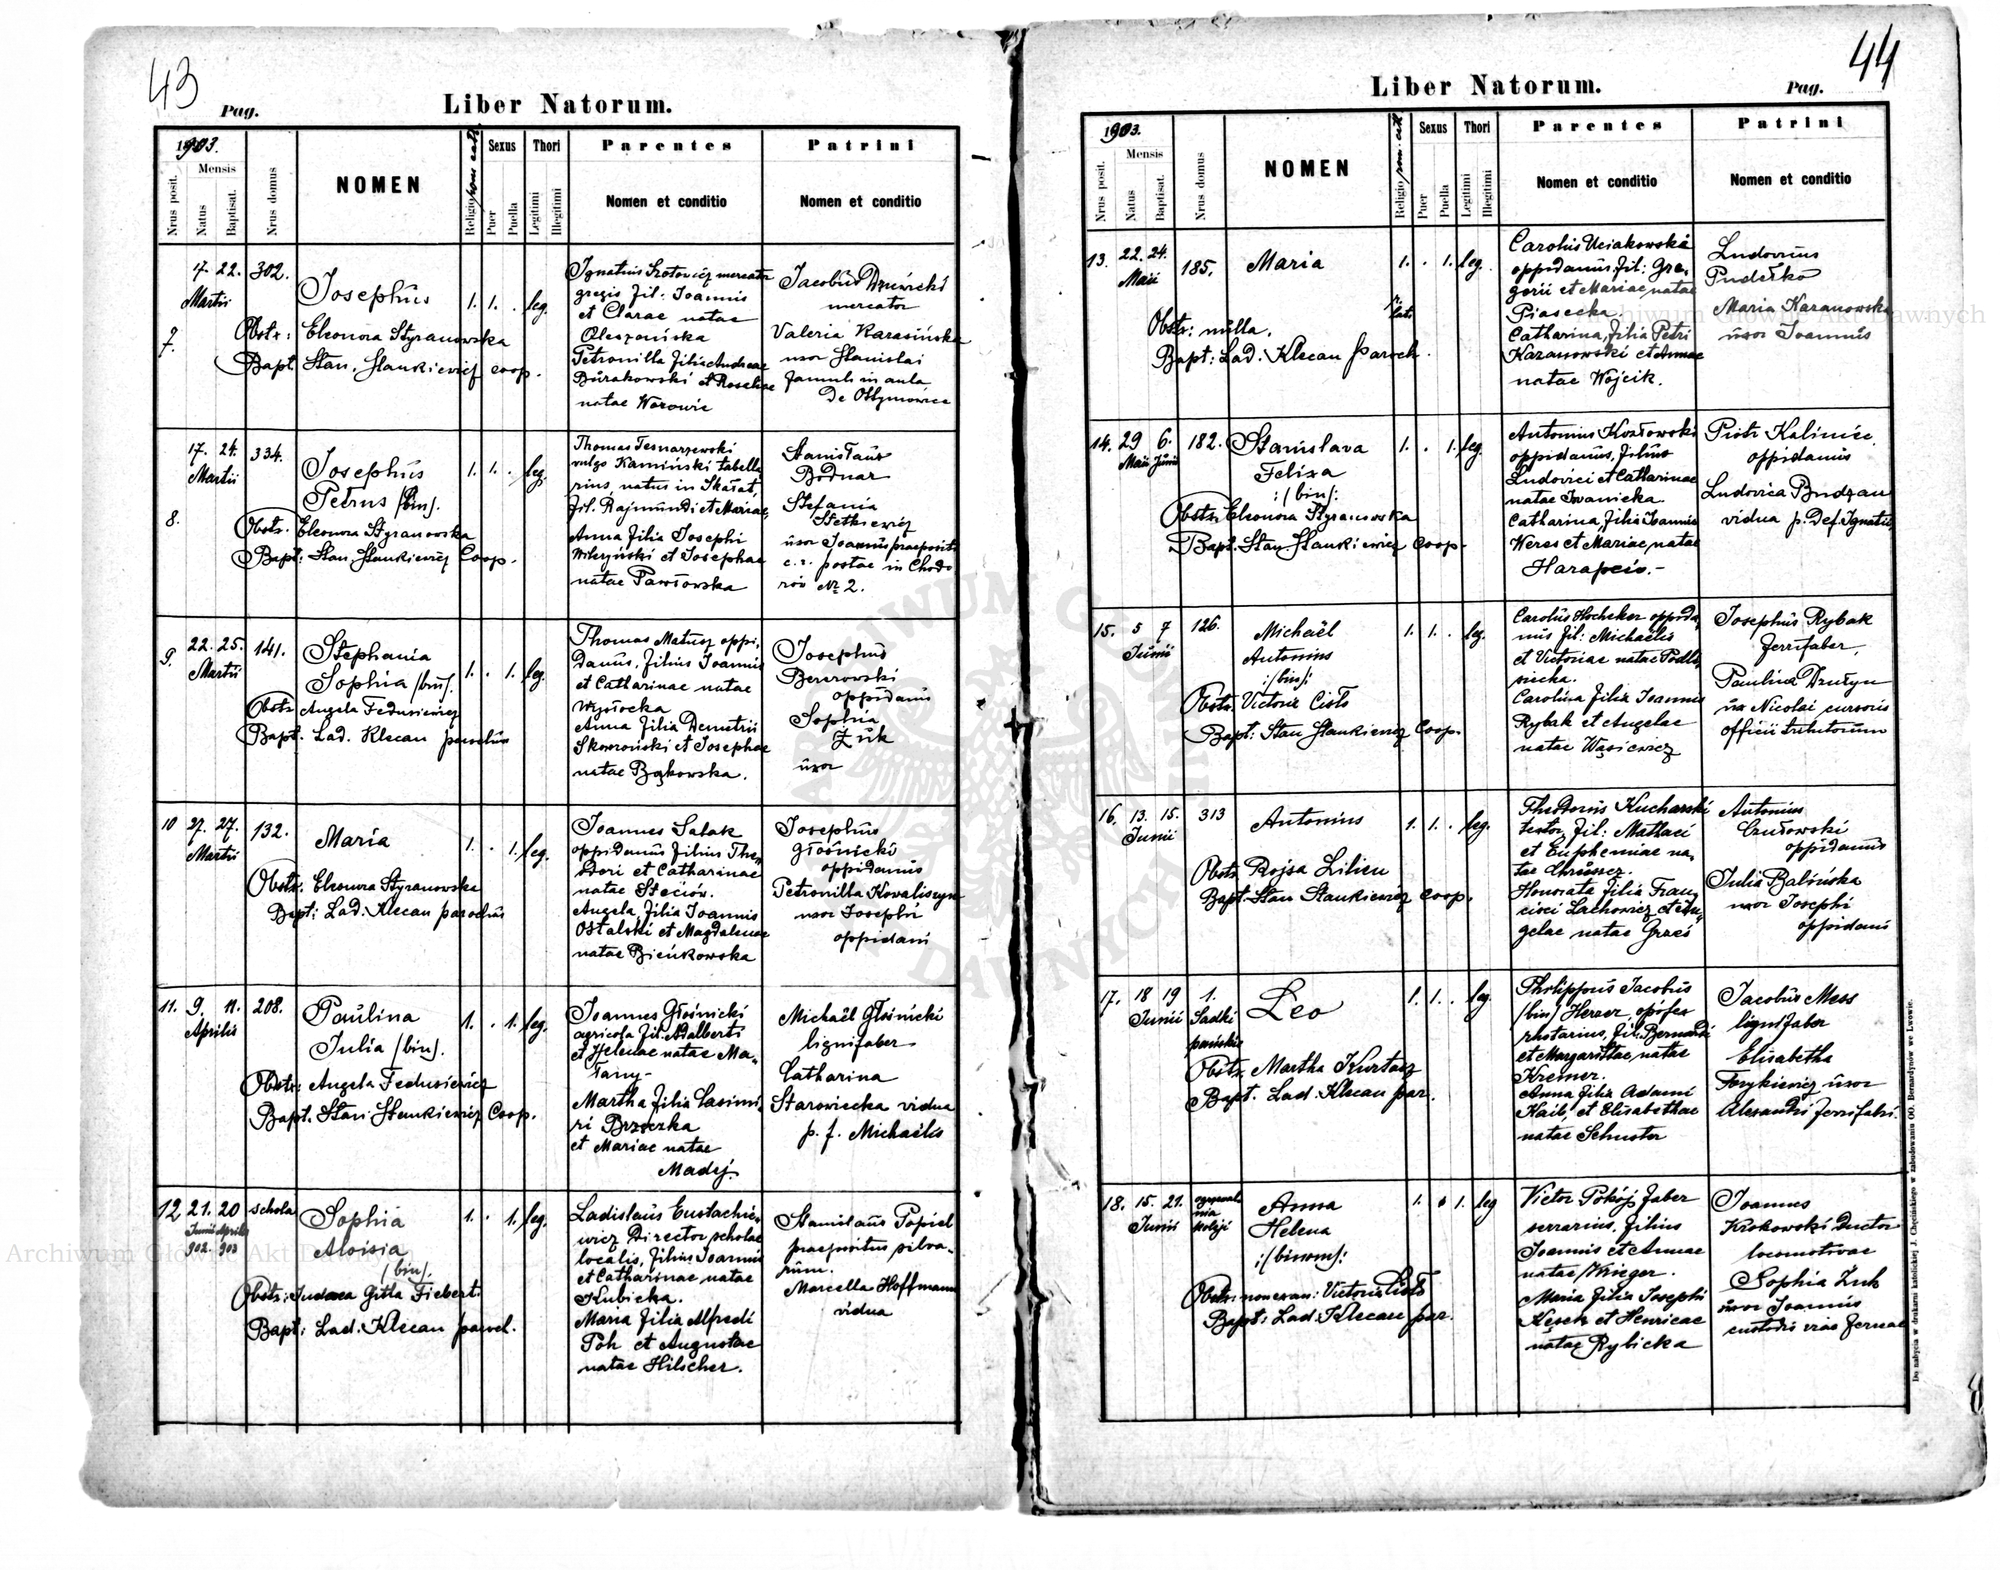 43
Pag.
Liber Natorum.
1903.
Mensis
Nrus posit.
Natus
Baptisat.
Nrus domus
NOMEN
Religio rom. cath.
Sexus
Puer
Puella
Thori
Legitimi
Illegitimi
Parentes
Nomen et conditio
Patrini
Nomen et conditio
7.
17. 22.
Martii
302.
Josephus
1. 1. . leg.
Obstr: Eleonora Styranowska
Bapt. Stan. Stankiewicz coop.
Ignatius Szotowicz mercator
gregis fil. Joannis
et Clarae natae
Petronilla filia Andreae
Burakowski et Rosaliae
natae Worowic
Jacobus
mercator
Valeria Karasińska
uxor Stanislai
famuli in aula
de Ottyniowice
8.
17. 24.
Martii
334.
Josephus
Petrus /bin/.
1. 1. . leg.
Obstr. Eleonora Styranowska
Bapt: Stan. Stankiewicz Coop.
Thomas Tesnarzewski
vulgo Kamiński tabella
rius, natus in Skałat,
fil. Rajmundi et Mariae,
Anna filia Josephi
Wilczyński et Josephae
natae Pawłowska
Stanisłaus
Bodnar
Stefania
Stetkiewicz
uxor Joannis praepositi
c. r. postae in Chodo
rów № 2.
9.
22. 25.
Martii
141.
Stephania
Sophia /bin/.
1. . 1. leg.
Obstr Angela Fedusiewicz
Bapt. Lad. Klecan parochus
Thomas Matusz oppi,
danus, filius Joannis
et Catharinae natae
Wysłocka
Anna filia Demetrii
Skowroński et Josephae
natae Bąkowska.
Josephus
Berezowski
oppidanus
Sophia
Żuk
uxor
10
27. 27.
Martii
132.
Maria
1. . 1. leg.
Obstr. Eleonora Styranowska
Bapt: Lad. Klecan parochus
Joannes Salak
oppidanus filius Theo,
dori et Catharinae
natae Steciów.
Angela, filia Joannis
Ostalski et Magdalenae
natae Bieńkowska
Josephus
Głośnicki
oppidanus
Petronilla Kowaliszyn
uxor Josephi
oppidani
11.
9. 11.
Aprilis
208.
Paulina
Julia /bin/.
1. . 1. leg.
Obstr: Angela Fedusiewicz
Bapt. Stan Stankiewicz Coop.
Joannes Głośnicki
agricola fil. Adalberti
et Helenae natae Ma-
tany-
Martha filia Casimi,
ri Brzeczka
et Mariae natae
Madej.
Michaël Głośnicki
lignifaber
Catharina
Starowiecka vidua
p. f. Michaëlis
12
21. 20
Junii Aprilis
902. 903
schola
Sophia
Aloisia
/bin/.
1. . 1. leg.
Obstr: Judaea Gitla Fiebert.
Bapt: Lad. Klecan paroch.
Ladislaus Eustachie-
wicz Director scholae
localis, filius Joannis
et Catharinae natae
Kubicka.
Maria filia Alfredi
Poh et Augustae
natae Hilscher.
Stanislaus Popiel
praepositus silva-
rum.
Marcella Hoffmann
vidua
44
Liber Natorum.
Pag.
1903.
Mensis
Nrus posit.
Natus
Baptisat.
Nrus domus
NOMEN
Religio rom. cath
Sexus
Puer
Puella
Thori
Legitimi
Illegitimi
Parentes
Nomen et conditio
Patrini
Nomen et conditio
13.
22. 24.
Maii
185.
Maria
1. . 1. leg.
r. lat.
Obstr: nulla.
Bapt: Lad. Klecan paroch.
Carolus Uciakowski
oppidanus, fil: Gre-
gorii et Mariae natae
Piasecka.
Catharina, filia Petri
Kazanowski et Annae
natae Wojcik.
Ludovicus
Pudełko
Maria Kazanowska
uxor Joannis
14.
29 6.
Maii Junii
182.
Stanislava
Felixa
:/bin/:
1. . 1. leg.
Obstr. Eleonora Styranowska
Bapt. Stan Stankiewicz Coop.
Antonius Kozłowski
oppidanus, filius
Ludovici et Catharinae
natae Iwanicka.
Catharina, filia Joannis
Weres et Mariae, natae
Harapcio.-
Piotr Kaliniec,
oppidanus
Ludovica Budzan
vidua p. def. Ignatii
15.
5 7
Junii
126.
Michaël
Antonius
:/bin/:
1. 1. . leg.
Obstr. Victoria Cisło
Bapt: Stan Stankiewicz Coop.
Carolus Hocheker oppida,
nus fil: Michaëlis
et Victoriae natae Podle
siecka.
Carolina filia Joannis
Rybak et Angelae
natae Wąsiewicz
Josephus Rybak
ferrifaber,
Paulina Dzułyn
ux Nicolai cursoris
officii tributorum
16.
13. 15.
Junii
313
Antonius
1. 1. . leg.
Obstr. Rojsa Lilien
Bapt. Stan Stankiewicz Coop.
Theodorus Kucharski
textor, fil: Matthaei
et Euphemiae na,
tae
Honorata filia Fran,
cisci Lachowicz et An,
gelae natae Grześ
Antonius
oppidanus
Julia Balińska
uxor Josephi
oppidani
17.
18 19
Junii
1.
Sadki
pańskie
Leo
1. 1. . leg.
Obstr. Martha Kurtasz
Bapt. Lad. Klecan par.
Philippus Jacobus
/bin/ Herzer, opifex
rhotarius, fil. Bernardi
et Margarittae, natae
Kremer.
Anna filia Adami
Kaib, et Elisabethae
natae Schuster
Jacobus Mess
lignifaber
Elisabetha
Forykiewicz uxor
Alexandri ferrifabri.
18.
15. 21.
Junii
ogrzewal
nia
kolei
Anna
Helena
:/binom/:
1. . 1. leg
Obstr. non exam: Victoria Cisło
Bapt: Lad. Klecan par.
Victor Pokój faber
serrarius, filius
Joannis et Annae
natae Krieger.
Maria filia Josephi
Kesch et Henricae
natae Rybicka
Joannes
Krokowski Ductor
locomotivae
Sophia Zuk
uxor Joannis
custodis viae ferreae
Do nabycia w drukarni katolickiej J. Chęcińskiego w zabudowaniu OO. Bernardynów we Lwowie.
Archiwum Główne Akt Dawnych
Archiwum Główne Akt Dawnych
ARCHIWUM GŁÓWNE AKT DAWNYCH